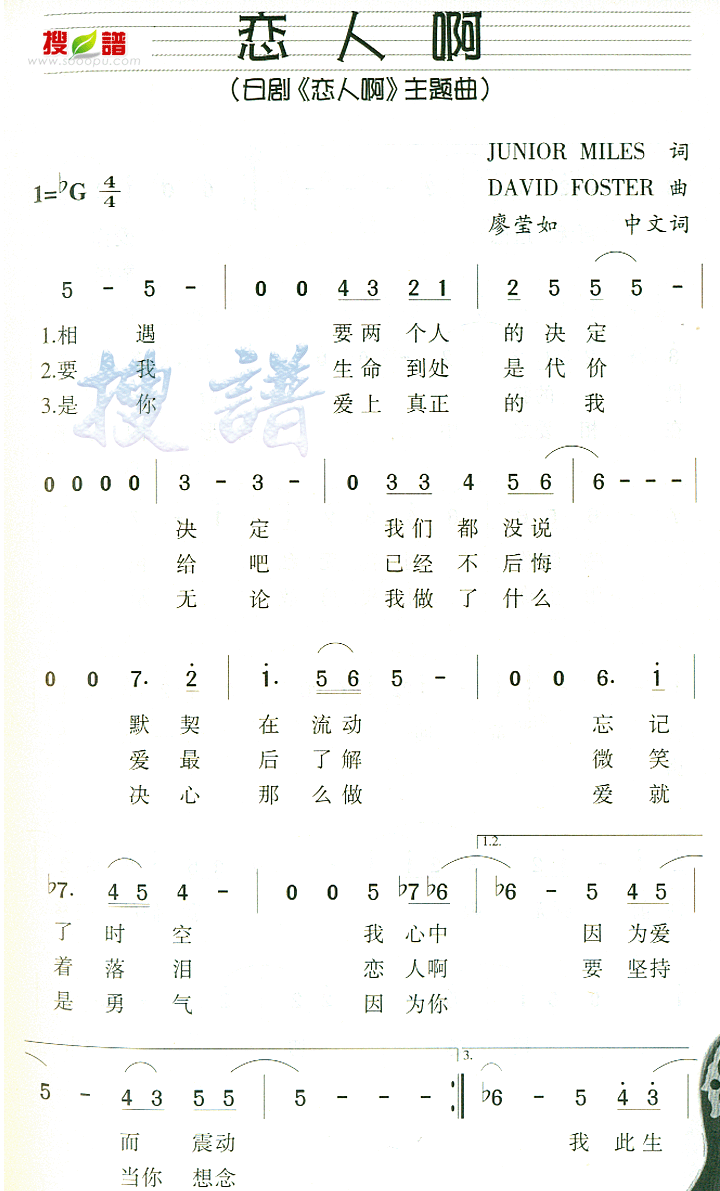 搜譜
www.sooopu.com
恋人啊
（日剧《恋人啊》主题曲）
JUNIOR MILES 词
DAVID FOSTER 曲
廖莹如 中文词
1=♭G 4/4
5 - 5 - | 0 0 4 3 2 1 | 2 5 5 5 - |
1.相 遇 要两 个人 的决定
2.要 我 生命 到处 是代价
3.是 你 爱上 真正 的 我
搜譜
0 0 0 0 | 3 - 3 - | 0 3 3 4 5 6 | 6 - - - |
决 定 我们 都 没说
给 吧 已经 不 后悔
无 论 我做 了 什么
0 0 7. 2̇ | 1̇. 5 6 5 - | 0 0 6. 1̇ |
默 契 在 流动 忘 记
爱 最 后 了解 微 笑
决 心 那 么做 爱 就
♭7. 4 5 4 - | 0 0 5 ♭7 ♭6 | 1.2. ♭6 - 5 4 5 |
了 时 空 我 心中 因 为爱
着 落 泪 恋 人啊 要 坚持
是 勇 气 因 为你
5 - 4 3 5 5 | 5 - - - :| 3. ♭6 - 5 4̇ 3̇ |
而 震动 我 此生
当你 想念